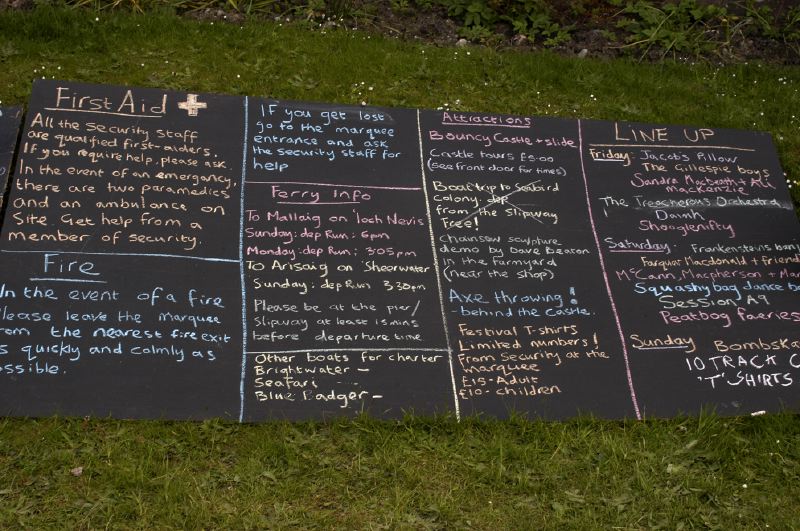 First Aid
All the security staff
are qualified first-aiders.
If you require help, please ask.
In the event of an emergency,
there are two paramedics
and an ambulance on
Site. Get help from a
member of security.
Fire
In the event of a fire
please leave the marquee
from the nearest fire exit
as quickly and calmly as
possible.
If you get lost
go to the marquee
entrance and ask
the security staff for
help
Ferry Info
To Mallaig on 'loch Nevis
Sunday: dep Rum: 6pm
Monday: dep Rum: 3.05pm
To Arisaig on Sheerwater
Sunday: dep Rum 3.30pm
Please be at the pier/
slipway at least 15 mins
before departure time
Other boats for charter
Brightwater -
Seafari -
Blue Badger -
Attractions
Bouncy Castle + slide
Castle tours £5.00
(see front door for times)
Boat trip to seabird
colony: dep
from the slipway
Free!
Chainsaw sculpture
demo by Dave Beaton
in the farmyard
(near the shop)
Axe throwing!
- behind the castle.
Festival T-shirts
Limited numbers!
From Security at the
marquee
£15 - Adult
£10 - children
LINE UP
Friday: Jacob's Pillow
The Gillespie boys
Sandra Macbeath + Ali
Mackenzie
The Treacherous Orchestra
Daimh
Shooglenifty
Saturday: Frankenstevns
Farquar Macdonald + friend
McCann, Macpherson + Mar
Squashy bag dance b
Session A9
Peatbog faeries
Sunday Bombska
10 TRACK C
'T' SHIRTS